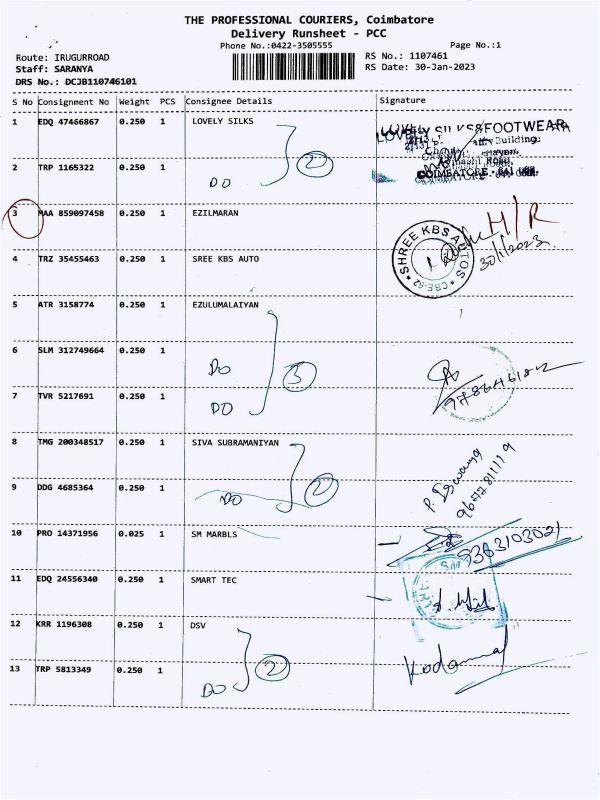 THE PROFESSIONAL COURIERS, Coimbatore
Delivery Runsheet - PCC
Phone No.:0422-3505555 Page No.:1
Route: IRUGURROAD RS No.: 1107461
Staff: SARANYA RS Date: 30-Jan-2023
DRS No.: DCJB110746101
S No Consignment No Weight PCS Consignee Details Signature
1 EDQ 47466867 0.250 1 LOVELY SILKS
LOVELY SILKS&FOOTWEAR
Building
2 TRP 1165322 0.250 1
DO 2
COIMBATORE
3 MAA 859097458 0.250 1 EZILMARAN H/R
SHREE KBS AUTOS * CBE-62 *
30/1/2023
4 TRZ 35455463 0.250 1 SREE KBS AUTO
5 ATR 3158774 0.250 1 EZULUMALAIYAN
6 SLM 312749664 0.250 1
DO 3
7 TVR 5217691 0.250 1
DO
8 TMG 200348517 0.250 1 SIVA SUBRAMANIYAN
9 DDG 4685364 0.250 1
DO 2
10 PRO 14371956 0.025 1 SM MARBLS
9363103021
11 EDQ 24556340 0.250 1 SMART TEC
12 KRR 1196308 0.250 1 DSV
13 TRP 5813349 0.250 1
DO 2